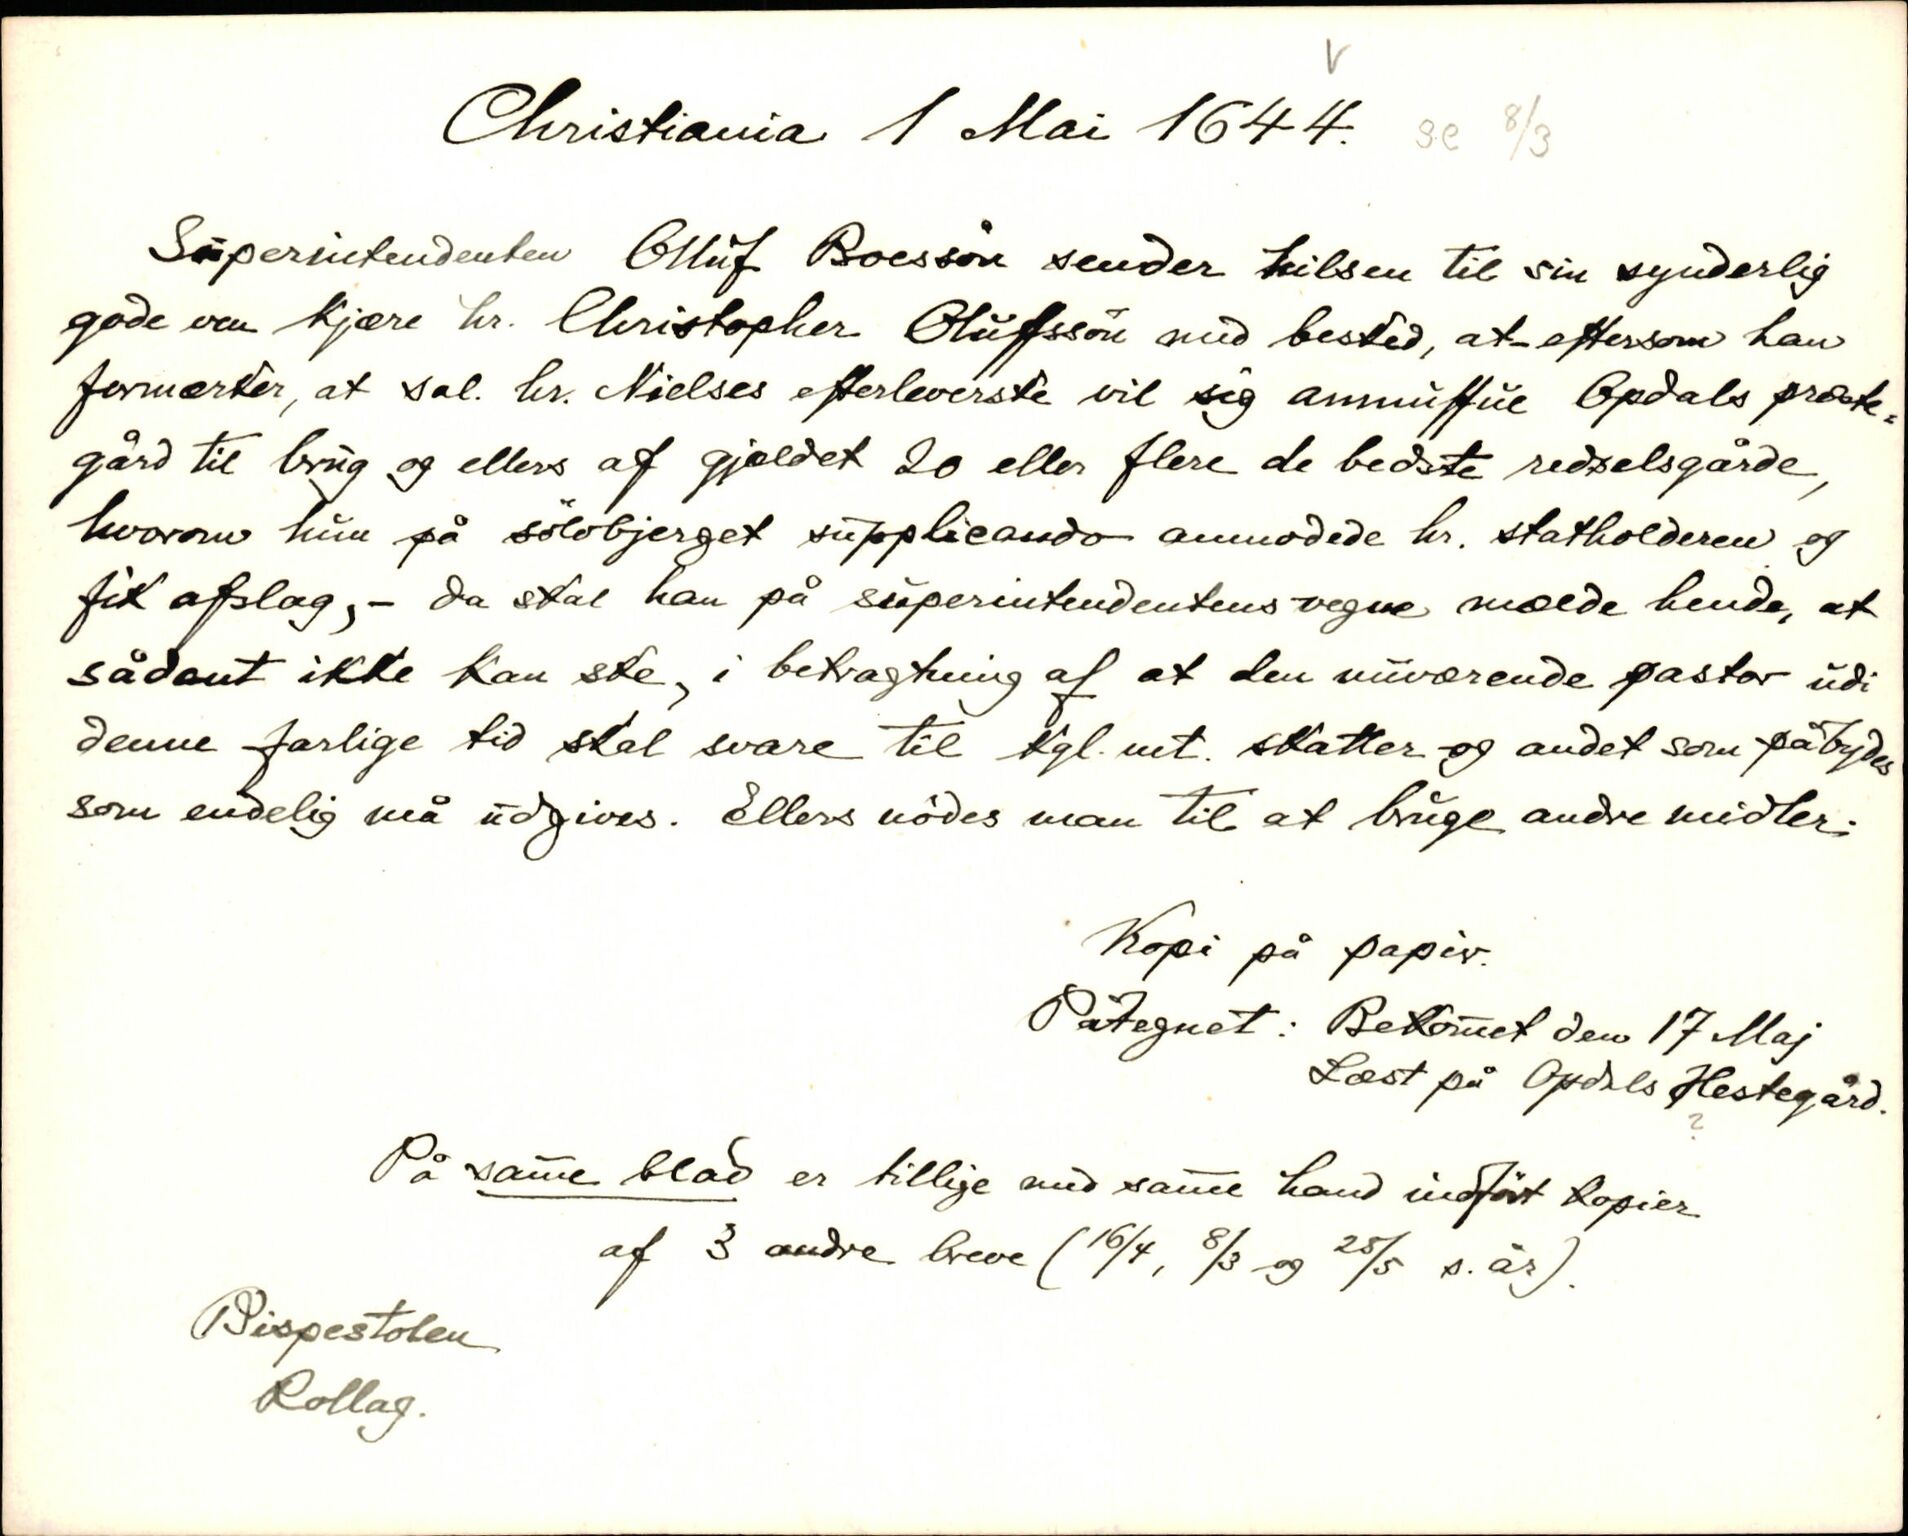 V
Christiania 1 Mai 1644. se 8/3
Superintendenten Olluf Boessön sender hilsen til sin synderlig
gode ven kjære hr. Christopher Oluffssön med besked, at eftersom han
formærker, at sal. hr. Nielses efterleverske vil sig anmuffue Opdals præste-
gård til brug og ellers af gjældet 20 eller flere de bedste redselsgårde,
hvorom hun på sölvbjerget supplicando anmodede hr. statholderen og
fik afslag, - da skal han på superintendentens vegne mælde hende, at
sådant ikke kan ske, i betragtning af at den nuværende pastor udi
denne farlige tid skal svare til kgl. mt. skatter og andet som påbydes
som endelig må udgives. Ellers nödes man til at bruge andre midler.
Kopi på papir.
Påtegnet: Bekom̅et den 17 Maj
Læst på Opdals Hestegård.
?
På sam̅e blad er tillige med sam̅e hand indfört kopier
af 3 andre breve (16/4, 8/3 og 25/5 s. år).
Bispestolen
Rollag.